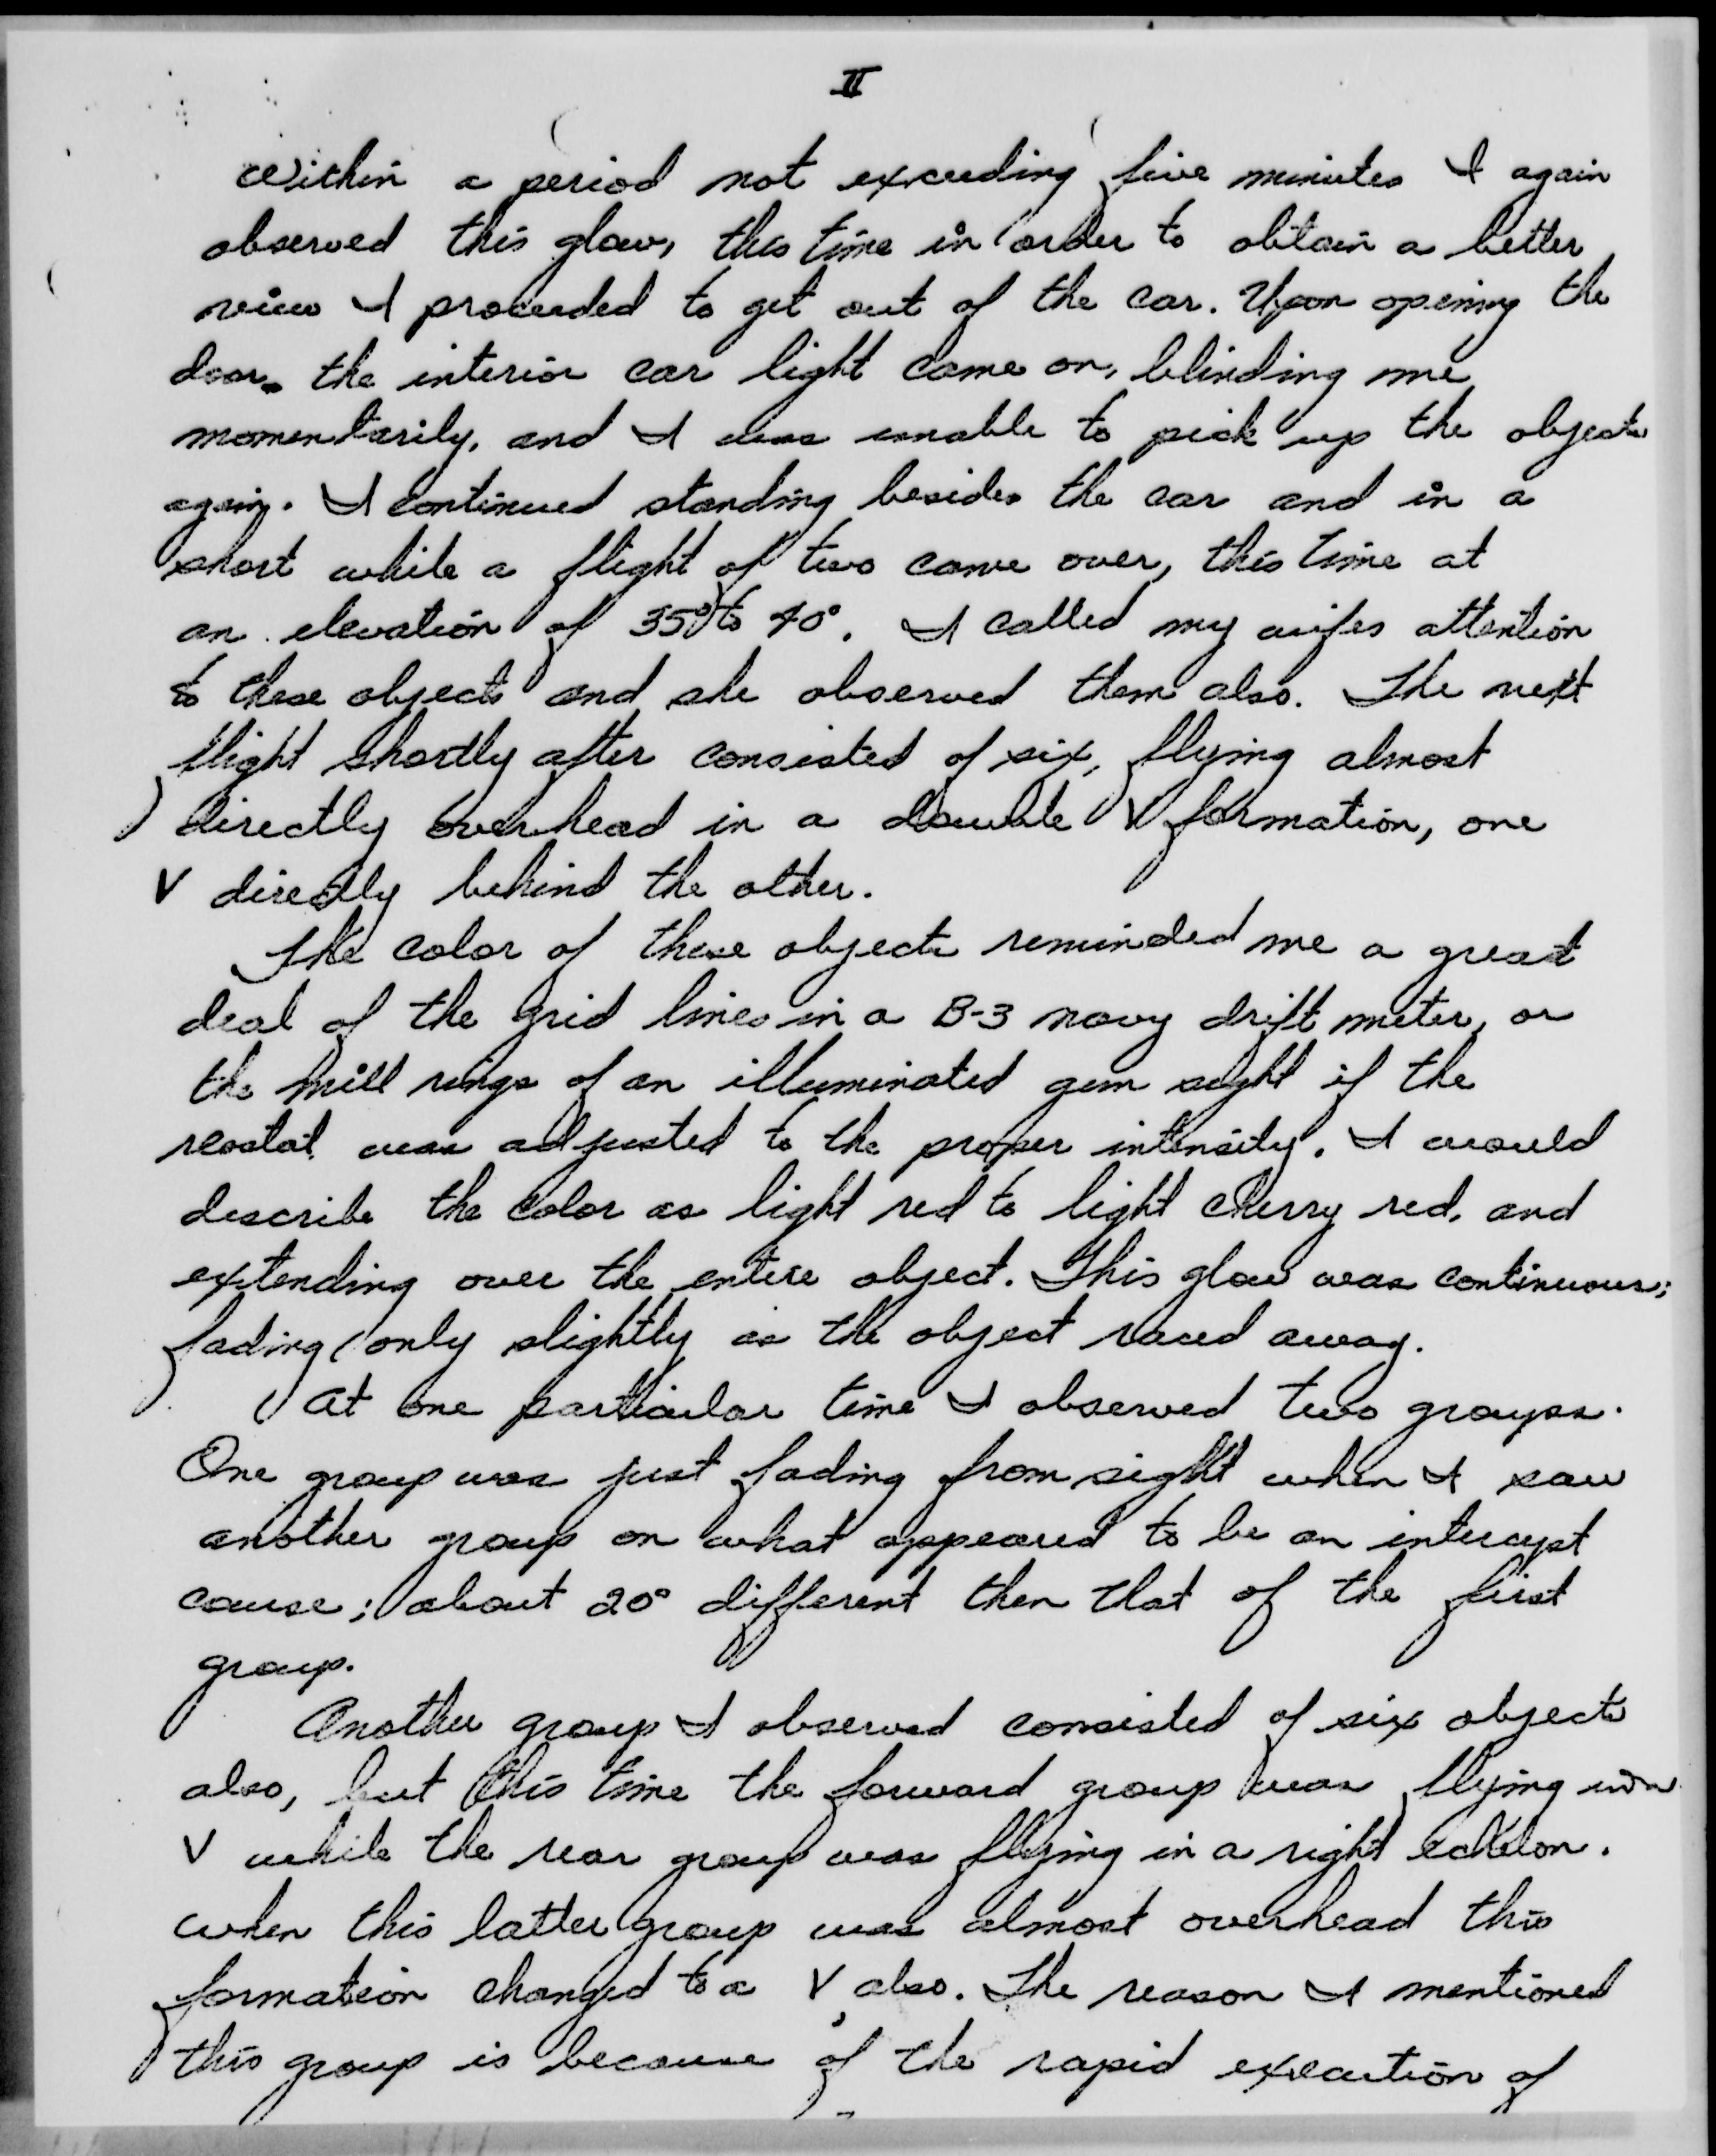 II
Within a period not exceeding five minutes I again
observed this glow, this time in order to obtain a better
view I proceeded to get out of the car. Upon opening the
door, the interior car light came on, blinding me
momentarily, and I was unable to pick up the objects
again. I continued standing besides the car and in a
short while a flight of two came over, this time at
an elevation of 35° to 40°. I called my wifes attention
to these objects and she observed them also. The next
flight shortly after consisted of six, flying almost
directly overhead in a double V formation, one
V directly behind the other.
The color of these objects reminded me a great
deal of the grid lines in a B-3 navy drift meter, or
the mill rings of an illuminated gun sight if the
reostat was adjusted to the proper intensity. I would
describe the color as light red to light cherry red, and
extending over the entire object. This glow was continuous;
fading only slightly as the object raced away.
At one particular time I observed two groups.
One group was just fading from sight when I saw
another group on what appeared to be an intercept
course; about 20° different then that of the first
group.
Another group I observed consisted of six objects
also, but this time the forward group was flying in a
V while the rear group was flying in a right echelon.
when this latter group was almost overhead this
formation changed to a V also. The reason I mentioned
this group is because of the rapid execution of